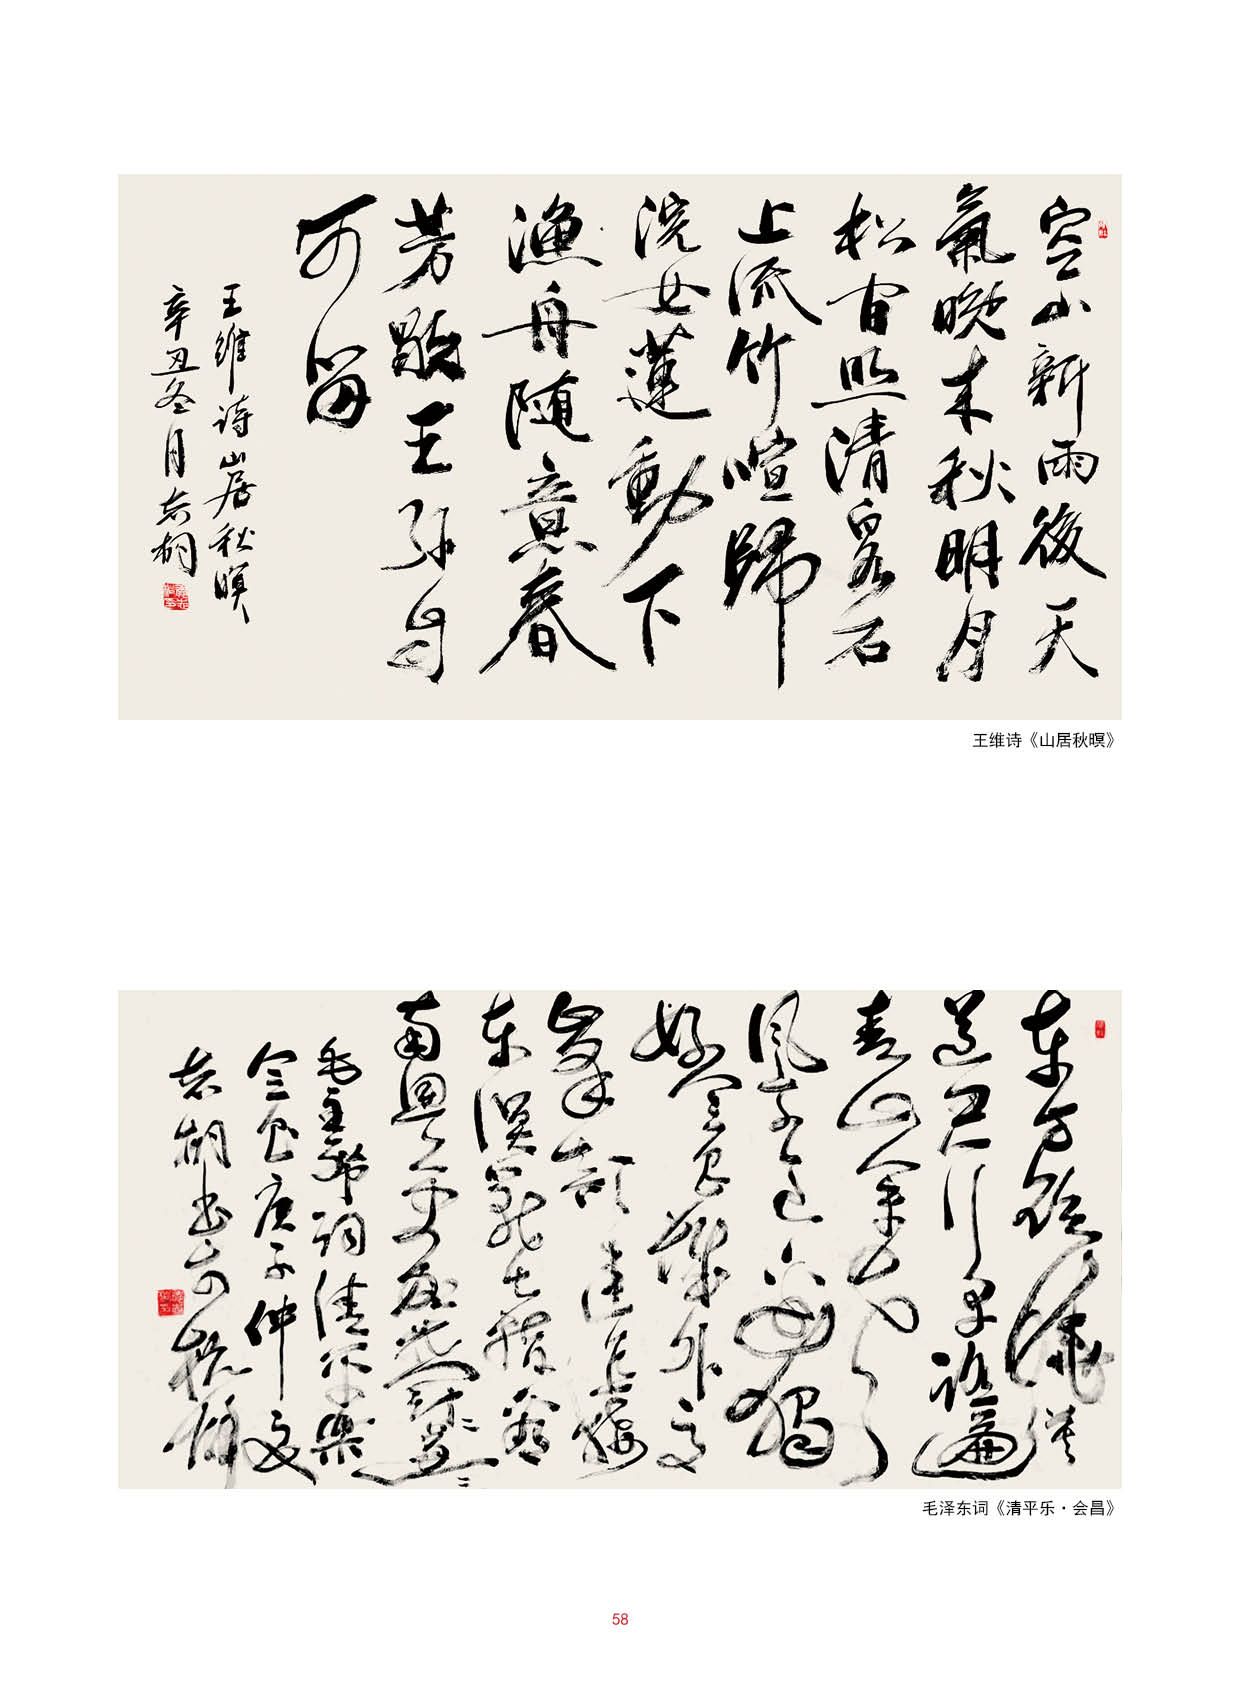 空山新雨後天
氣晚来秋明月
松间照清泉石
上流竹喧歸
浣女蓮動下
漁舟随意春
芳歇王孫自
可留
王維诗山居秋暝
辛丑冬月志桐
王维诗《山居秋暝》
东方欲晓莫
道君行早踏遍
青山人未老
风景这边独
好会昌城外高
峰颠连直接
东溟战士指看
南粤更加郁々葱々
毛主席词清平樂
会昌庚子仲夏
志桐书於杭
毛泽东词《清平乐·会昌》
58